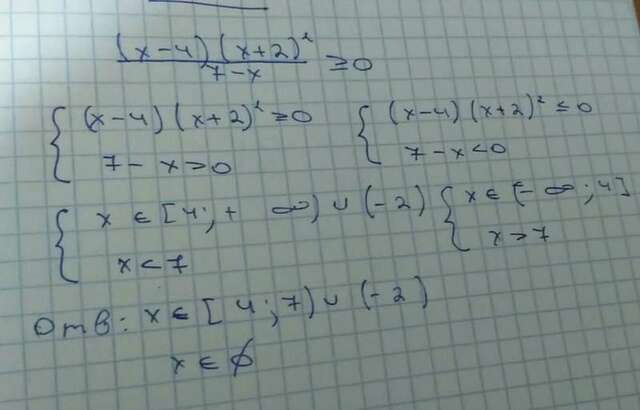 (x-4)(x+2)²/7-x ≥0
{(x-4)(x+2)²≥0 {(x-4)(x+2)²≤0
7-x>0 7-x<0
{x ∈ [4;+ ∞) ∪ (-2) {x ∈ (-∞;4]
x<7 x>7
Отв: x ∈ [4;7) ∪ (-2)
x ∈ ∅